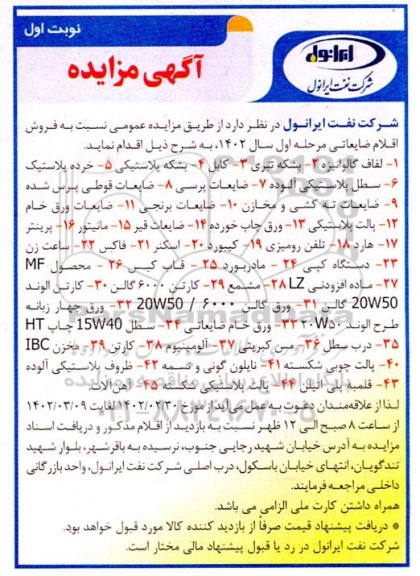 نوبت اول
ایرانول
شرکت نفت ایرانول
آگهی مزایده
شرکت نفت ایرانول در نظر دارد از طریق مزایده عمومی نسبت به فروش
اقلام ضایعاتی مرحله اول سال ۱۴۰۲، به شرح ذیل اقدام نماید.
۱- لفاف گالوانیزه ۲- بشکه نبری ۳- کابل ۴- بشکه پلاستیکی ۵- خرده پلاستیک
۶- سطل پلاستیکی آلوده ۷- ضایعات پرسی ۸- ضایعات قوطی پرس شده
۹- ضایعات ته کشی و مخازن ۱۰- ضایعات برنجی ۱۱- ضایعات ورق خام
۱۲- پالت پلاستیکی ۱۳- ورق چاپ خورده ۱۴- ضایعات قیر ۱۵- مانیتور ۱۶- پرینتر
۱۷- هارد ۱۸- تلفن رومیزی ۱۹- کیبورد ۲۰- اسکنر ۲۱- فاکس ۲۲- ساعت زن
۲۳- دستگاه کپی ۲۴- مادربورد ۲۵- قاب کیس ۲۶- محصول MF
۲۷- ماده افزودنی LZ ۲۸- مشمع ۲۹- کارتن ۶۰۰۰ گالن ۳۰- کارتن الوند
20W50 گالن ۳۱- ورق گالن ۶۰۰۰ / 20W50 ۳۲- ورق چهار زبانه
طرح الوند ۲۰W۵۰ ۳۳- ورق خام ضایعاتی ۳۴- سطل 15W40 چاپ HT
۳۵- درب سطل ۳۶- مس کبریتی ۳۷- آلومینیوم ۳۸- کارتن ۳۹- مخزن IBC
۴۰- پالت چوبی شکسته ۴۱- نایلون گونی و تسمه ۴۲- ظروف پلاستیکی آلوده
۴۳- قلمبه پلی اتیلن ۴۴- پالت پلاستیکی شکسته ۴۵- آهن آلات
لذا از علاقه‌مندان دعوت به عمل می‌آید از مورخ ۱۴۰۲/۰۲/۳۰ لغایت ۱۴۰۲/۰۳/۰۹
از ساعت ۸ صبح الی ۱۲ ظهر نسبت به بازدید از اقلام مذکور و دریافت اسناد
مزایده به آدرس خیابان شهید رجایی جنوب، نرسیده به باقرشهر، بلوار شهید
تندگویان، انتهای خیابان باسکول، درب اصلی شرکت نفت ایرانول، واحد بازرگانی
داخلی مراجعه فرمایند.
همراه داشتن کارت ملی الزامی می باشد.
* دریافت پیشنهاد قیمت صرفاً از بازدید کننده کالا مورد قبول خواهد بود.
شرکت نفت ایرانول در رد یا قبول پیشنهاد مالی مختار است.